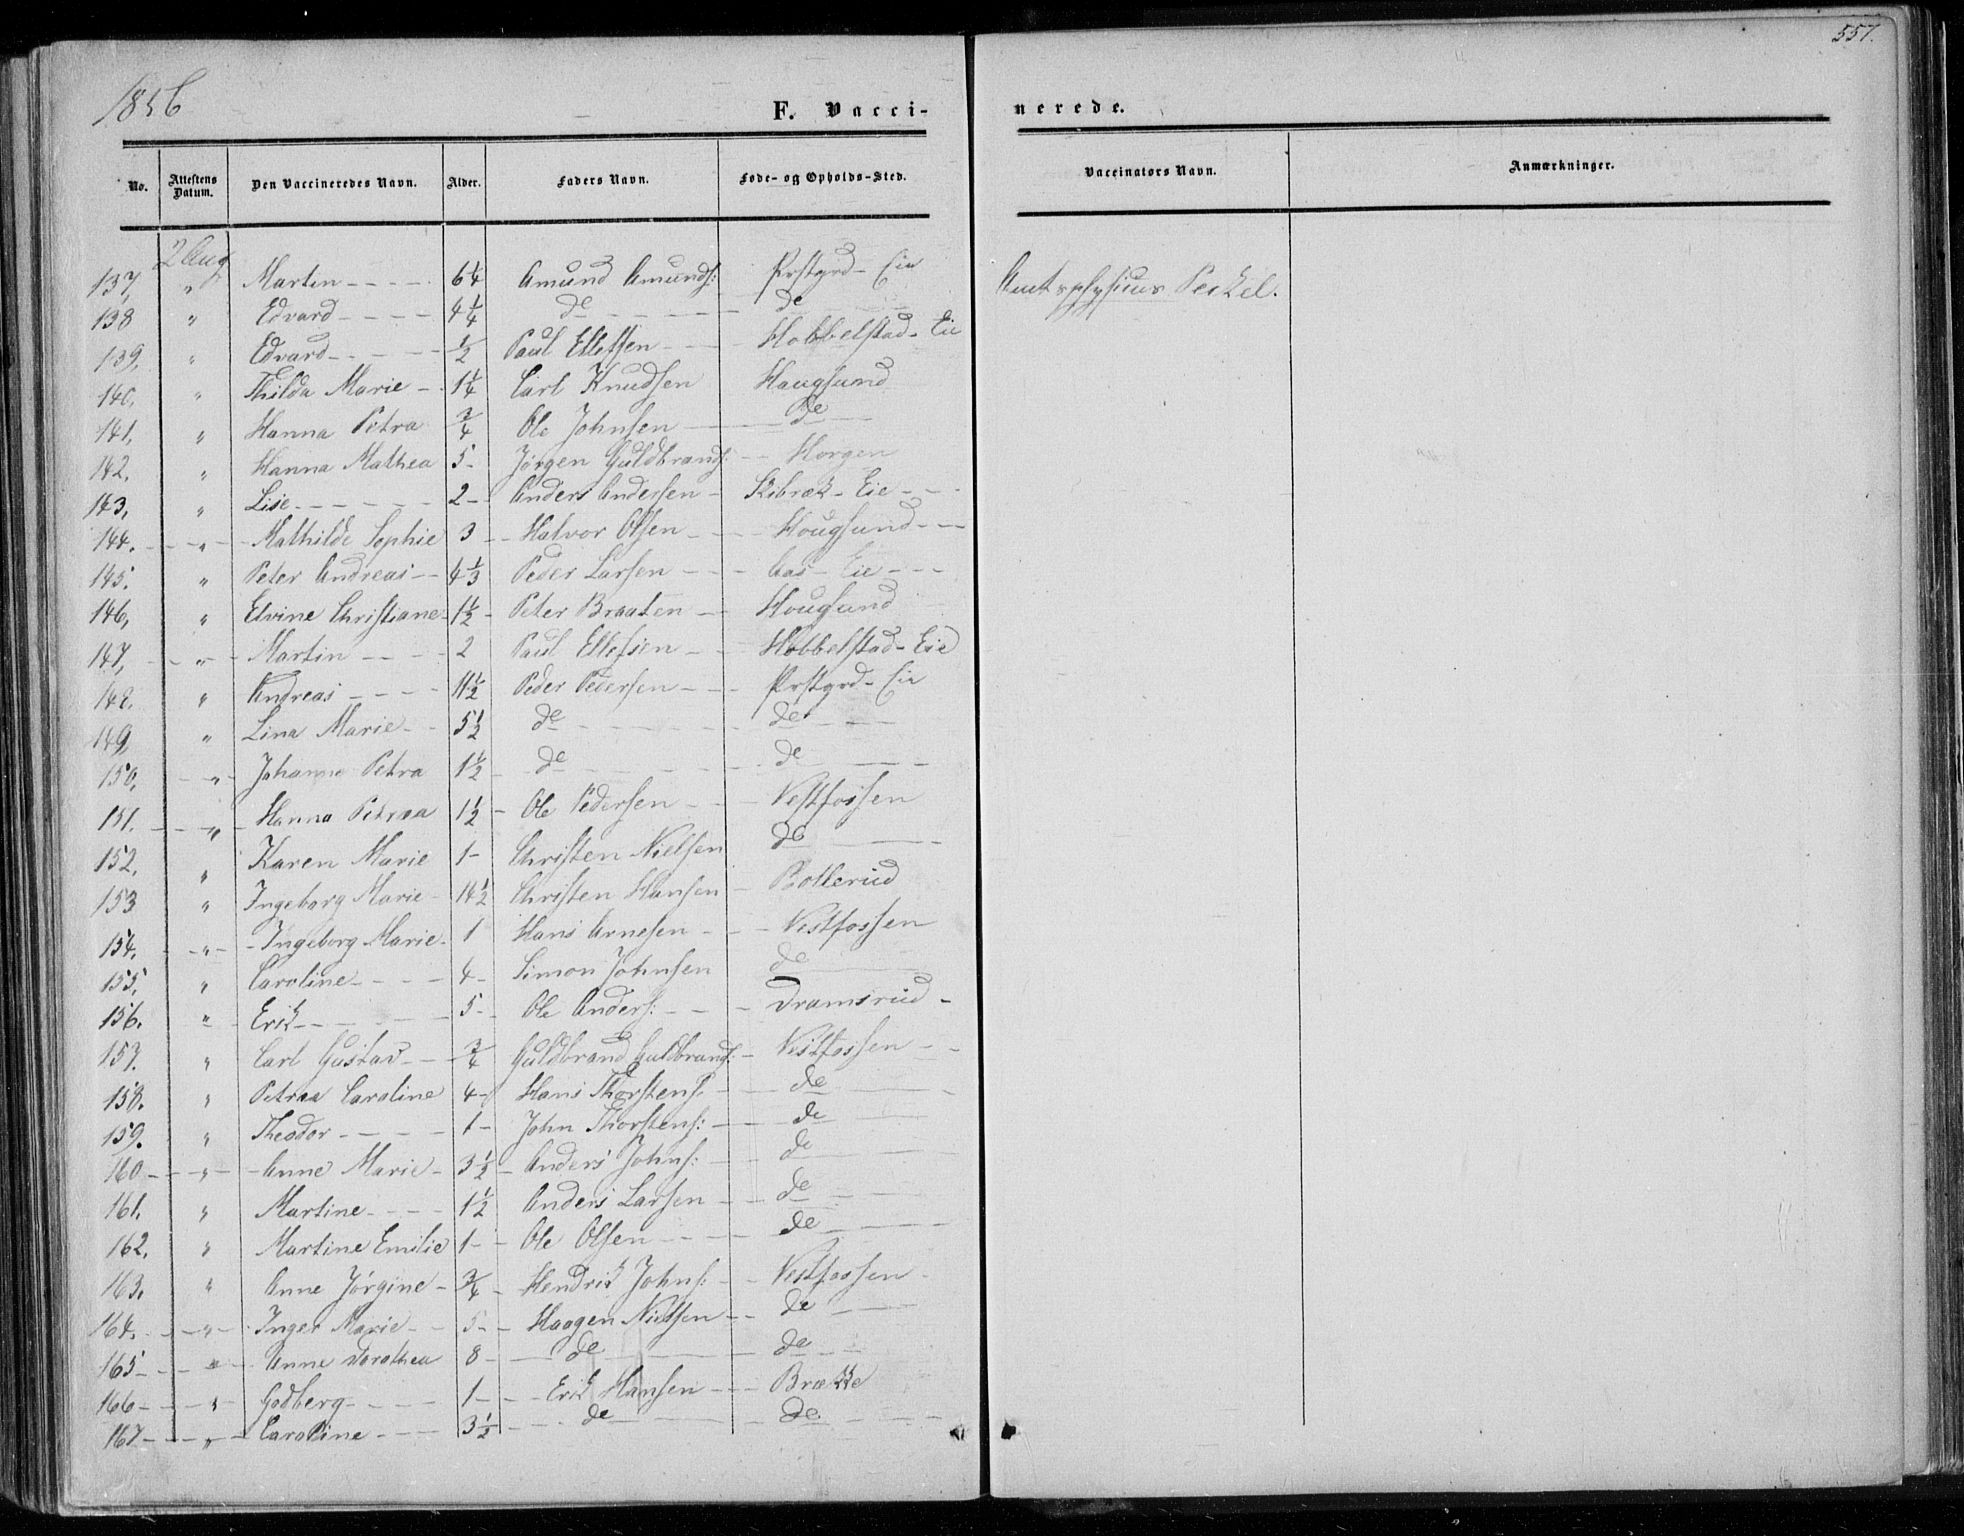 557.
1856
F. Vacci-
nerede.
No. Attestens Datum. Den Vaccineredes Navn. Alder. Faders Navn. Føde- og Opholds-Sted. Vaccinators Navn. Anmærkninger.
2 Aug
137, " Martin - - - - 6¼ Amund Amunds: Prstgrd- Eie Amtsphysicus Peckel.
138 " Edvard - - - - 4¼ de - - - - de
139, " Edvard - - - - ½ Paul Ellefsen - - Hobbelstad- Eie
140, " Thilda Marie - 1¼ Carl Knudsen Haugsund
141, " Hanna Petra ¾ Ole Johnsen - de
142, " Hanna Mathea 5- Jørgen Guldbrands: - - Horgen
143, " Lise - - - - 2- Anders Andersen - Skibræk- Eie - -
144. - " - Mathilde Sophie 3 - Halvor Olsen - - Hougsund - -
145. " Peter Andreas - - 4⅓ Peder Larsen - - - Aas - Eie - - -
146, " Elvine Christiane 1½ - Peter Braaten - - Hougsund
147, - " - Martin - - - 2 Paul Ellefsen - - Hobbelstad- Eie
148. " Andreas - - - - 11½ Peder Pedersen - - - Prstgrd- Eie
149, " Lina Marie - - 5½ de - - - - de - -
150, - " - Johanne Petra 1½ - de - - - - de - -
151. - " - Hanna Petrea 1½ - Ole Pedersen - - Vestfossen
152. " Karen Marie 1- Christen Nielsen de
153 " Ingeborg Marie - 14½ Christen Hansen - Bollerud
154. - " - Ingeborg Marie - 1 Hans Arnesen - - - Vestfossen
155, " Caroline - - - - 4- Simon Johnsen de
156. " - Erik - - - - 5- Ole Anders: - - - Dramsrud -
157. " Carl Gustav - - ¾ Guldbrand Guldbrands: - Vestfossen - -
158. " Petrea Caroline 4- Hans Thorstens: - de
159. " Theodor - - - - 1- John Thorstens: - - de
160 - - " - Anne Marie - 3½ - Anders Johns: - - de
161. " Martine - - - - 1½ Anders Larsen - - de - -
162. " Martine Emilie 1- - Ole Olsen - - - de - -
163. " Anne Jørgine - ¾ - Hendrik Johns: - - Vestfossen -
164. - - " - Inger Marie - - 5- - Haagen Nielsen - - de
165 - - " - Anne Dorothea 8 - - de - de - -
166 - - - " Godberg - - - 1- - - Erik Hansen - - - Brække
167 - - - " - Caroline - - - 3½ - - - de - - de - -